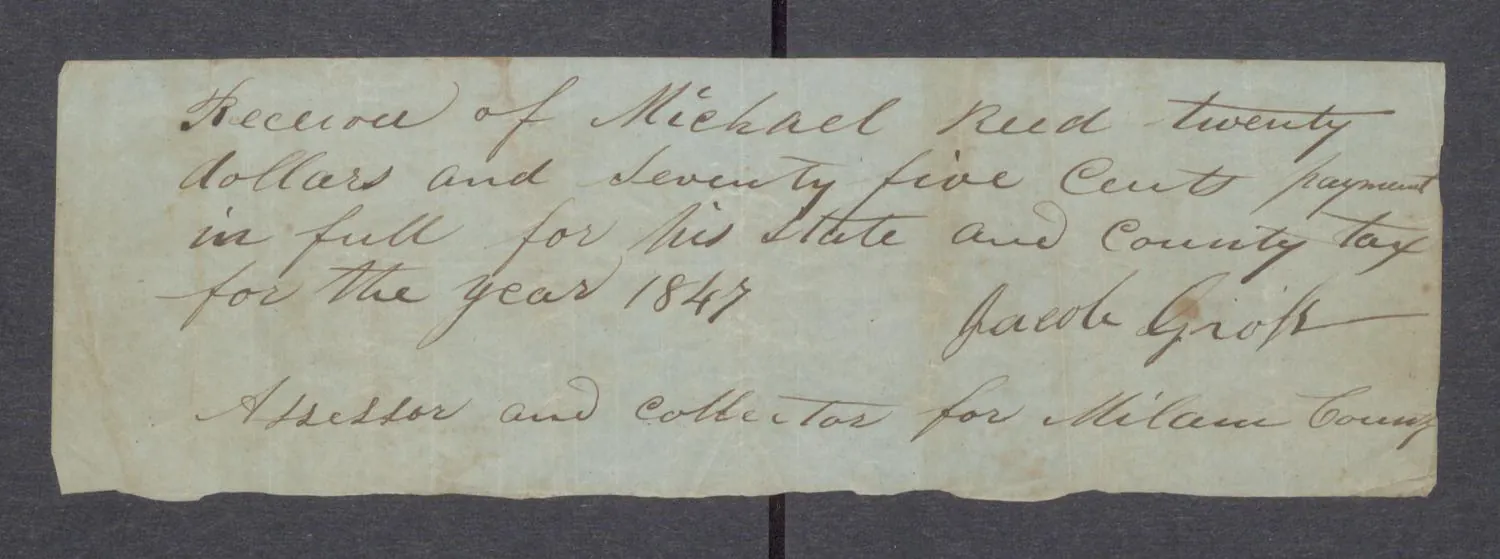 Received of Michael Reed twenty
dollars and Seventy five Cents payment
in full for his State and County tax
for the year 1847
Jacob Gross
Assessor and collector for Milam County